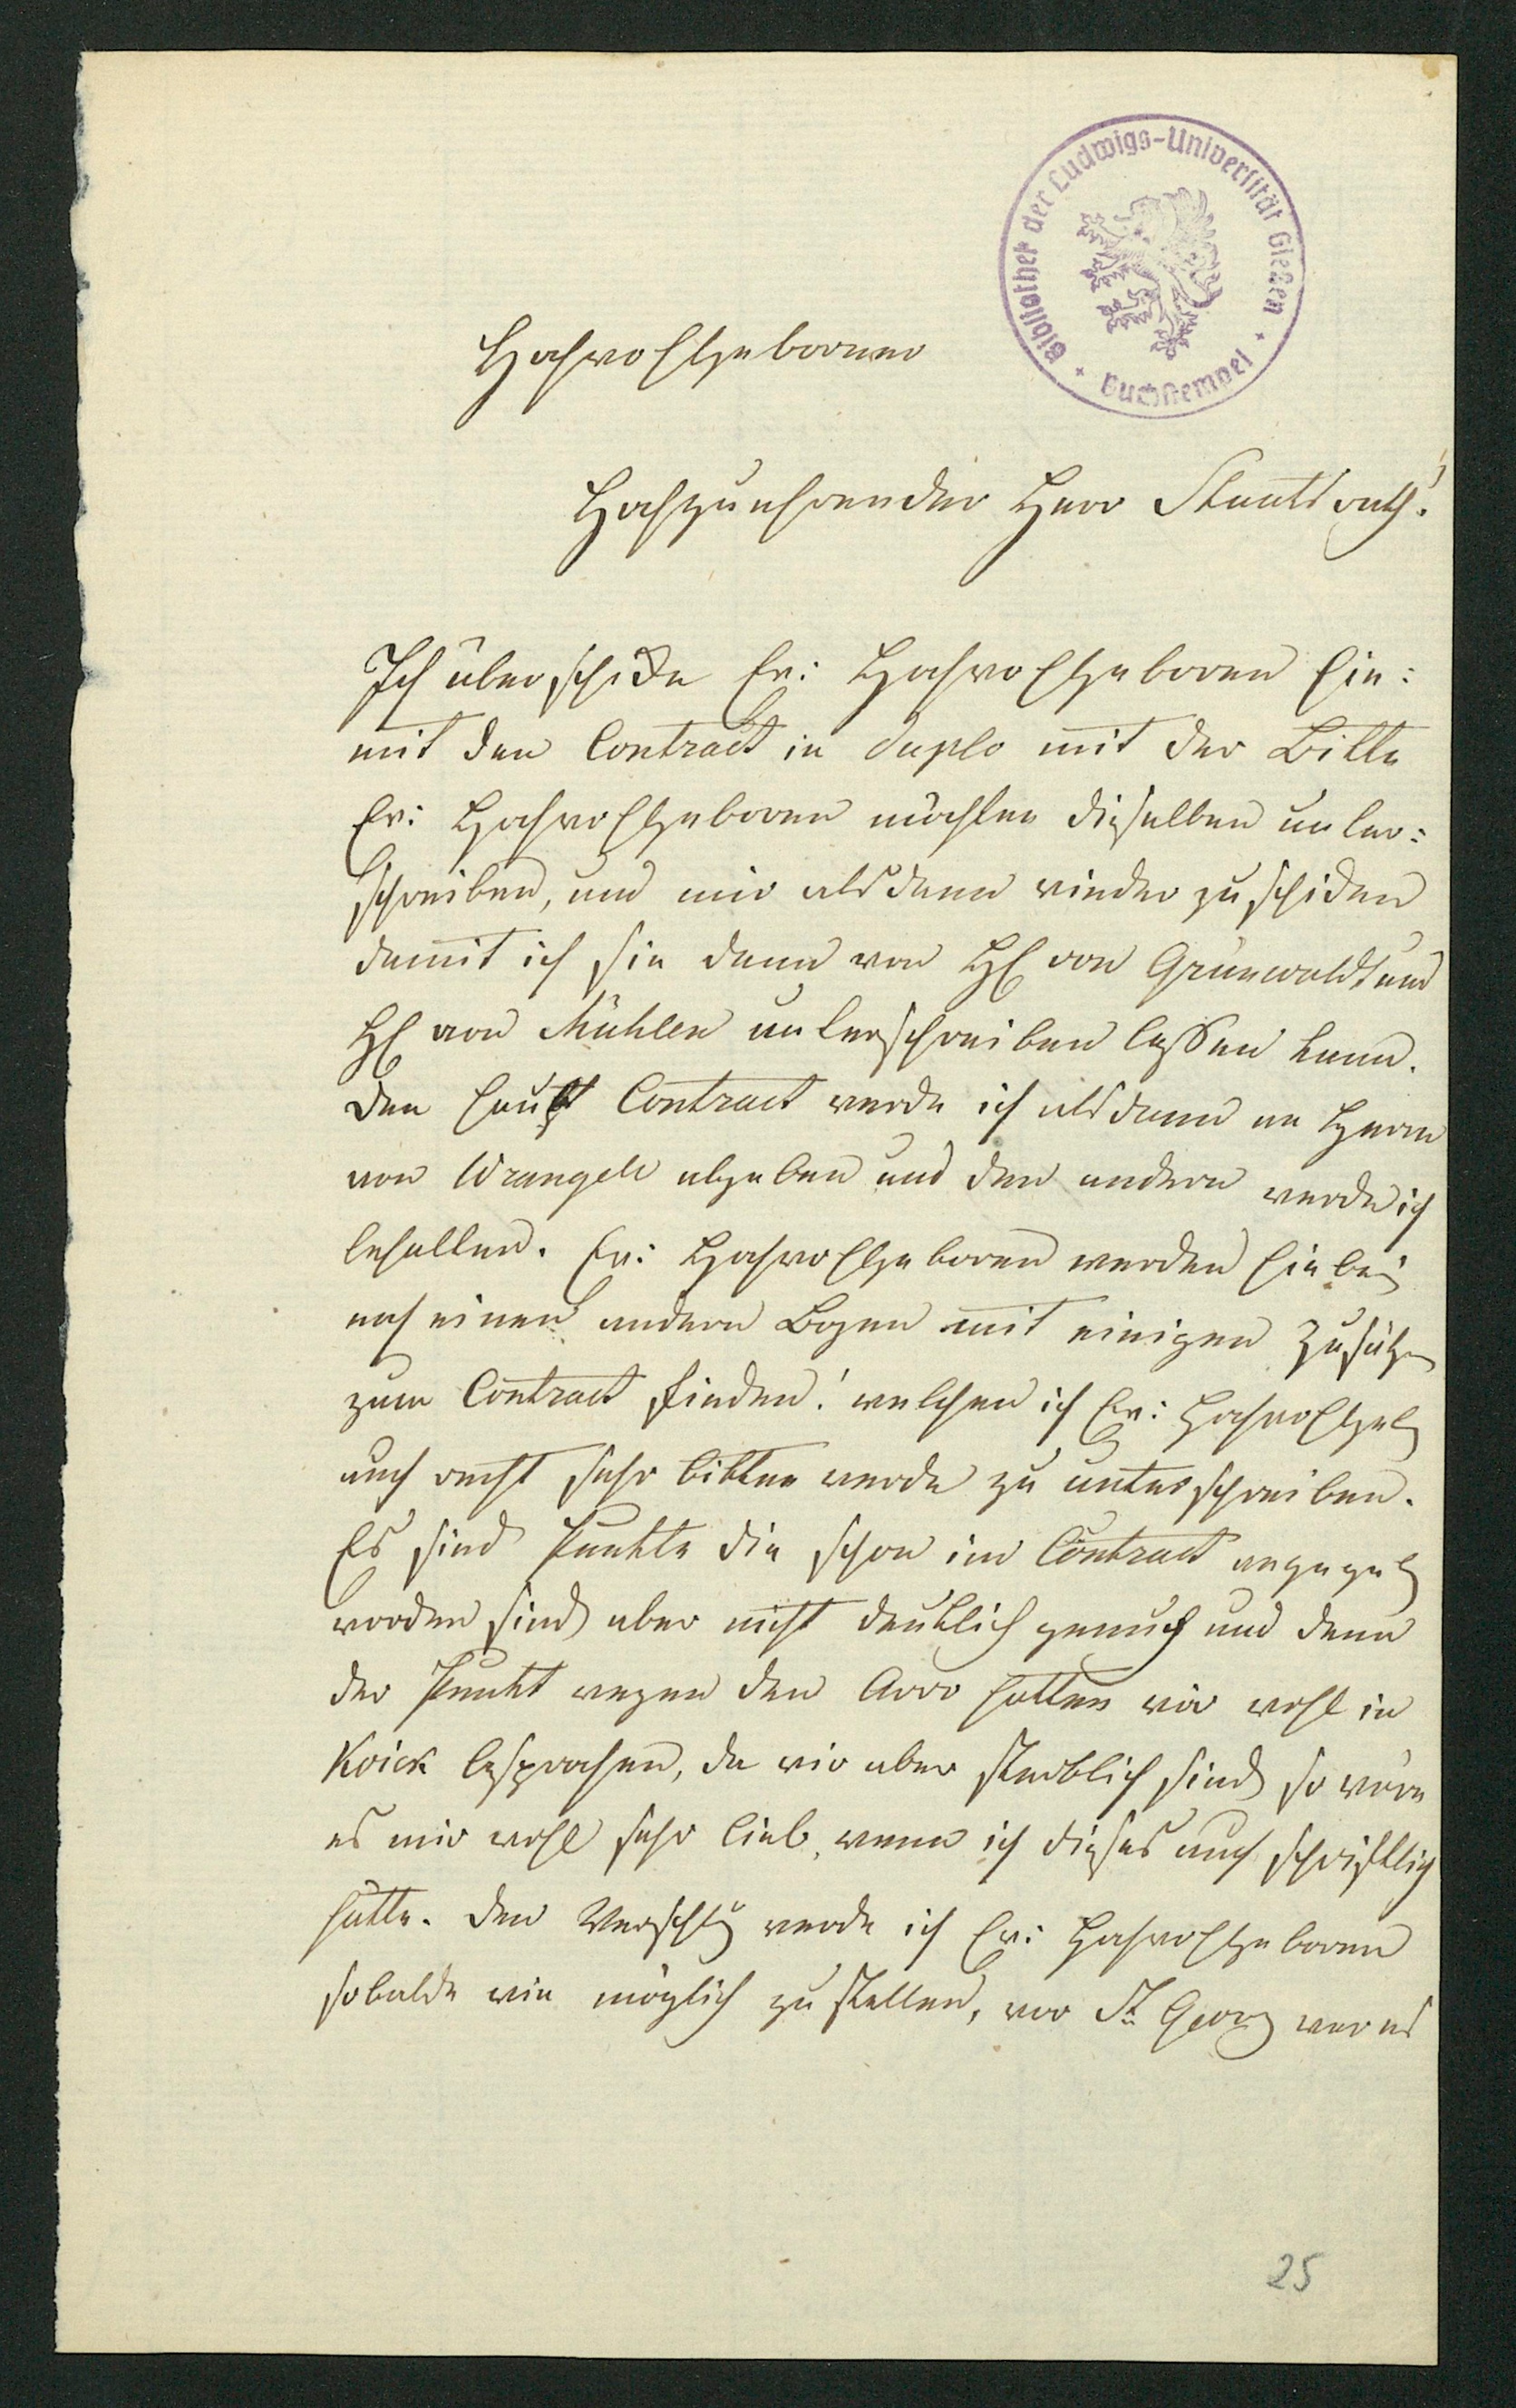 Bibliothek der Ludwigs-Universität Gießen
+ Buchstempel +
Hochwohlgeborner
Hochzuehrender Herr Staatsrath!
Ich überschicke Ew: Hochwohlgeboren hie:
mit den Contract in duplo mit der Bitte
Ew: Hochwohlgeboren möchten dieselben unter:
schreiben, und mir alsdann wieder zuschicken
damit ich sie dann von H von Grünewaldt und
H von Mühlen unterschreiben lassen kann.
Den haupt Contract werde ich alsdann an Herrn
von Wrangell abgeben und den andern werde ich
behalten. Ew: Hochwohlgeboren werden hiebei
noch einen andern Bogen mit einigen Zusätzen
zum Contract finden! welchen ich Ew: Hochwohlgeb
auch recht sehr bitten werde zu unterschreiben.
Es sind Punkte die schon im Contract angegeb
worden sind aber nicht deutlich genug und dann
der Punkt wegen den hatten wir wohl in
Koick besprochen, da wir aber sterblich sind so wäre
es mir wohl sehr lieb, wenn ich dieses auch schriftlich
hätte. Den werde ich Ew: Hochwohlgeboren
sobalde wie möglich zustellen, vor St Georg war es
25